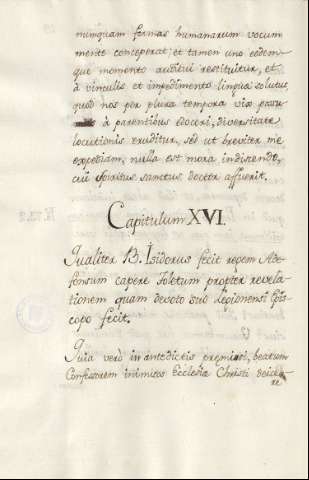 numquam formas humanarum vocum
mente conceperat; et tamen uno eodem-
que momento auditui restituitur, et
à vinculis et impedimento lingua solutus,
quod nos per plura tempora vix
à parentibus edoceri, diversitate
locutionis eruditur, sed ut breviter me
expediam, nulla est mora indiscendo,
cũ Spiritus sanctus doctor affuerit.
Capitulum XVI.
Qualiter B. Isidorus fecit regem Ade-
fonsum capere Toletum propter revela-
tionem quam devoto suo Legionensi Epis-
copo fecit.
Quia verò in antedictis præmisi, beatum
Confessorem inimicos Ecclesiæ Christi deicere